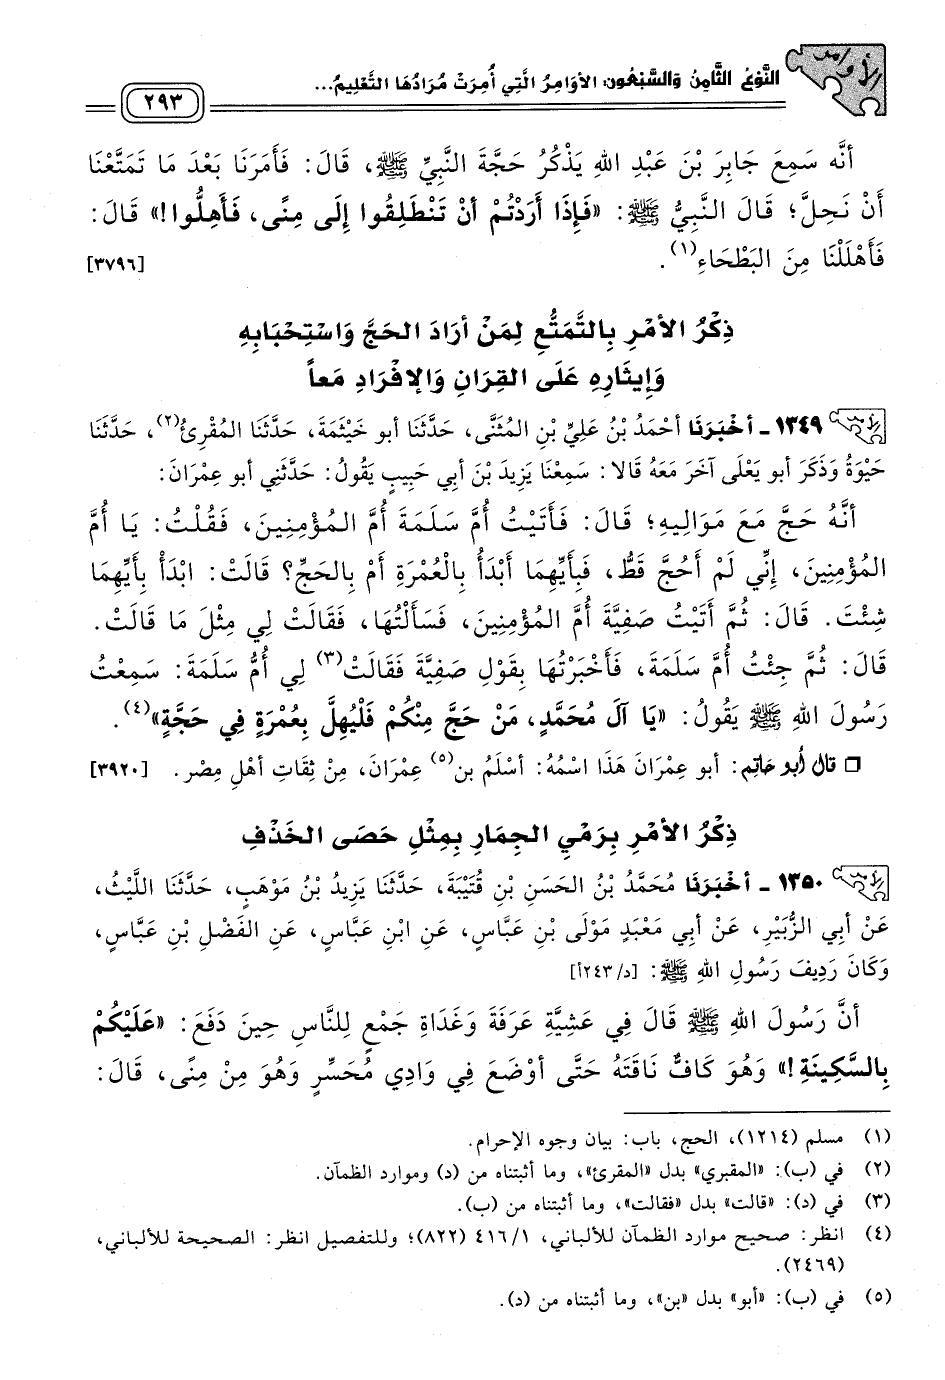 الأوامر
النَّوْعُ الثَّامِنُ وَالسَّبْعُونَ: الأَوَامِرُ الَّتِي أُمِرَتْ مُرَادُهَا التَّعْلِيمُ...
٢٩٣
أنَّه سَمِعَ جَابِرَ بْنَ عَبْدِ اللهِ يَذْكُرُ حَجَّةَ النَّبِيِّ ﷺ، قَالَ: فَأَمَرَنَا بَعْدَ مَا تَمَتَّعْنَا
أَنْ نَحِلَّ؛ قَالَ النَّبِيُّ ﷺ: «فَإِذَا أَرَدْتُمْ أَنْ تَنْطَلِقُوا إِلَى مِنًى، فَأَهِلُّوا!» قَالَ:
فَأَهْلَلْنَا مِنَ البَطْحَاءِ(١). [٣٧٩٦]
ذِكْرُ الأَمْرِ بِالتَّمَتُّعِ لِمَنْ أَرَادَ الحَجَّ وَاسْتِحْبَابِهِ
وَإِيثَارِهِ عَلَى القِرَانِ وَالإفْرَادِ مَعاً
١٣٤٩ - أَخْبَرَنَا أَحْمَدُ بْنُ عَلِيِّ بْنِ المُثَنَّى، حَدَّثَنَا أبو خَيْثَمَةَ، حَدَّثَنَا المُقْرِئُ(٢)، حَدَّثَنَا
حَيْوَةُ وَذَكَرَ أبو يَعْلَى آخَرَ مَعَهُ قَالا: سَمِعْنَا يَزِيدَ بْنَ أبي حَبِيبٍ يَقُولُ: حَدَّثَنِي أبو عِمْرَانَ:
أنَّهُ حَجَّ مَعَ مَوَالِيهِ؛ قَالَ: فَأَتَيْتُ أُمَّ سَلَمَةَ أُمَّ المُؤْمِنِينَ، فَقُلْتُ: يَا أُمَّ
المُؤْمِنِينَ، إِنِّي لَمْ أَحُجَّ قَطُّ، فَبِأَيِّهِمَا أَبْدَأُ بِالْعُمْرَةِ أَمْ بِالحَجِّ؟ قَالَتْ: ابْدَأْ بِأَيِّهِمَا
شِئْتَ. قَالَ: ثُمَّ أَتَيْتُ صَفِيَّةَ أُمَّ المُؤْمِنِينَ، فَسَأَلْتُهَا، فَقَالَتْ لِي مِثْلَ مَا قَالَتْ.
قَالَ: ثُمَّ جِئْتُ أُمَّ سَلَمَةَ، فَأَخْبَرْتُهَا بِقَوْلِ صَفِيَّةَ فَقَالَتْ(٣) لِي أُمُّ سَلَمَةَ: سَمِعْتُ
رَسُولَ اللهِ ﷺ يَقُولُ: «يَا آلَ مُحَمَّدٍ، مَنْ حَجَّ مِنْكُمْ فَلْيُهِلَّ بِعُمْرَةٍ فِي حَجَّةٍ»(٤).
□ قال أبو حاتم: أبو عِمْرَانَ هَذَا اسْمُهُ: أَسْلَمُ بن(٥) عِمْرَانَ، مِنْ ثِقَاتِ أهْلِ مِصْر. [٣٩٢٠]
ذِكْرُ الأَمْرِ بِرَمْيِ الجِمَارِ بِمِثْلِ حَصَى الخَذْفِ
١٣٥٠ - أَخْبَرَنَا مُحَمَّدُ بْنُ الحَسَنِ بْنِ قُتَيْبَةَ، حَدَّثَنَا يَزِيدُ بْنُ مَوْهَبٍ، حَدَّثَنَا اللَّيْثُ،
عَنْ أبي الزُّبَيْرِ، عَنْ أبي مَعْبَدٍ مَوْلَى بْنِ عَبَّاسٍ، عَنِ ابْنِ عَبَّاسٍ، عَنِ الفَضْلِ بْنِ عَبَّاسٍ،
وَكَانَ رَدِيفَ رَسُولِ اللهِ ﷺ: [د/٢٤٣أ]
أنَّ رَسُولَ اللهِ ﷺ قَالَ فِي عَشِيَّةِ عَرَفَةَ وَغَدَاةِ جَمْعٍ لِلنَّاسِ حِينَ دَفَعَ: «عَلَيْكُمْ
بِالسَّكِينَةِ!» وَهُوَ كَافٌّ نَاقَتَهُ حَتَّى أَوْضَعَ فِي وَادِي مُحَسِّرٍ وَهُوَ مِنْ مِنًى، قَالَ:
(١) مسلم (١٢١٤)، الحج، باب: بيان وجوه الإحرام.
(٢) في (ب): «المقبري» بدل «المقرئ»، وما أثبتناه من (د) وموارد الظمآن.
(٣) في (د): «قالت» بدل «فقالت»، وما أثبتناه من (ب).
(٤) انظر: صحيح موارد الظمآن للألباني، ٤١٦/١ (٨٢٢)؛ وللتفصيل انظر: الصحيحة للألباني،
(٢٤٦٩).
(٥) في (ب): «أبو» بدل «بن»، وما أثبتناه من (د).